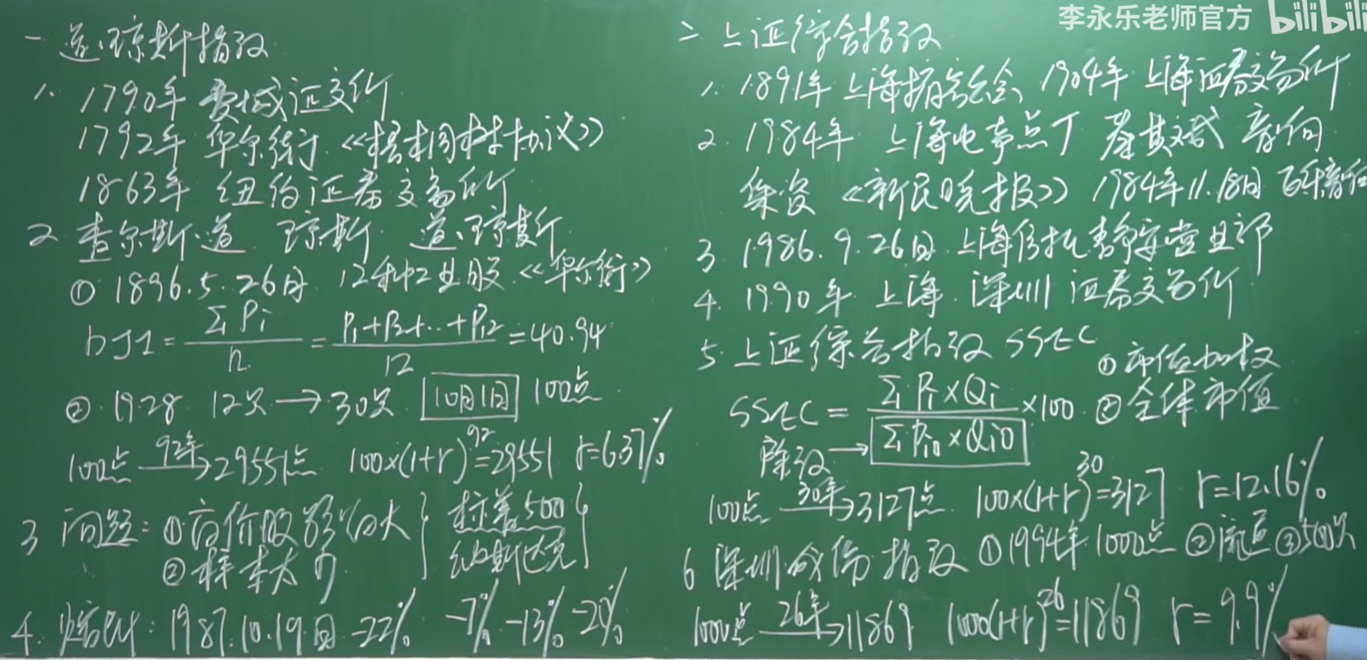 李永乐老师官方 bilibili
一 道·琼斯指数
1. 1790年 费城证交所
1792年 华尔街 《梧桐树协议》
1863年 纽约证券交易所
2 查尔斯·道 琼斯 道·琼斯
① 1896.5.26日 12种工业股 《华尔街》
DJI = ΣPi / n = P1+P2+…+P12 / 12 = 40.94
② 1928 12只 → 30只 10月1日 100点
100点 92年→ 29551点 100×(1+r)^92=29551 r=6.37%
3 问题: ①高价股影响大 标普500
②样本太少 纳斯达克
4. 熔断: 1987.10.19日 -22% -7% -13% -20%
二 上证综合指数
1. 1891年 上海掮客总会 1904年 上海证券交易所
2. 1984年 上海电声总厂 秦其斌 音响
集资 《新民晚报》 1984年11.18日 飞乐音响
3 1986.9.26日 上海信托静安营业部
4. 1990年 上海 深圳 证券交易所
5. 上证综合指数 SSEC ①市值加权
SSEC = ΣPi×Qi / ΣPi0×Qi0 ×100 ②全体市值
除数→
100点 30年→ 3127点 100×(1+r)^30=3127 r=12.16%
6 深圳成份指数 ①1994年 1000点 ②流通 ③500只
1000点 26年→ 11869 1000(1+r)^26=11869 r=9.9%